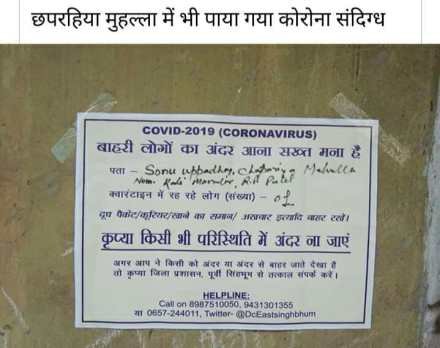 छपरहिया मुहल्ला में भी पाया गया कोरोना संदिग्ध
COVID-2019 (CORONAVIRUS)
बाहरी लोगों का अंदर आना सख्त मना है
पता – Sonu Uppadhay, Chapariya Mohalla
क्वारंटाइन में रह रहे लोग (संख्या) – 01
दूध पैकेट/कूरियर/खाने का समान/ अखबार इत्यादि बाहर रखें।
कृप्या किसी भी परिस्थिति में अंदर ना जाएं
अगर आप ने किसी को अंदर या अंदर से बाहर जाते देखा है
तो कृप्या जिला प्रशासन, पूर्वी सिंहभूम से तत्काल संपर्क करें।
HELPLINE:
Call on 8987510050, 9431301355
या 0657-244011, Twitter- @DcEastsinghbhum